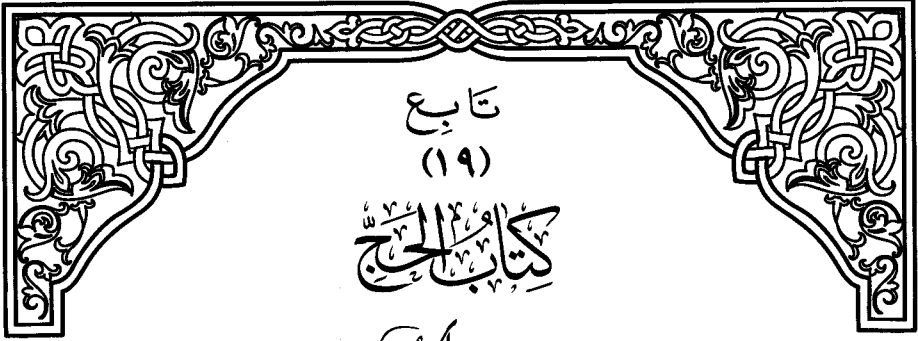 تَابِع
(١٩)
كِتَابُ الحَجِّ